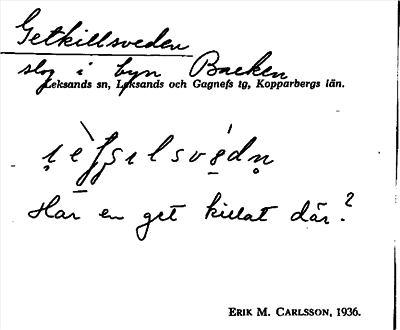 Getkillsveden
slog i byn Backen
Leksands sn, Leksands och Gagnefs tg, Kopparbergs län.
Har en get killat där?
ERIK M. CARLSSON, 1936.